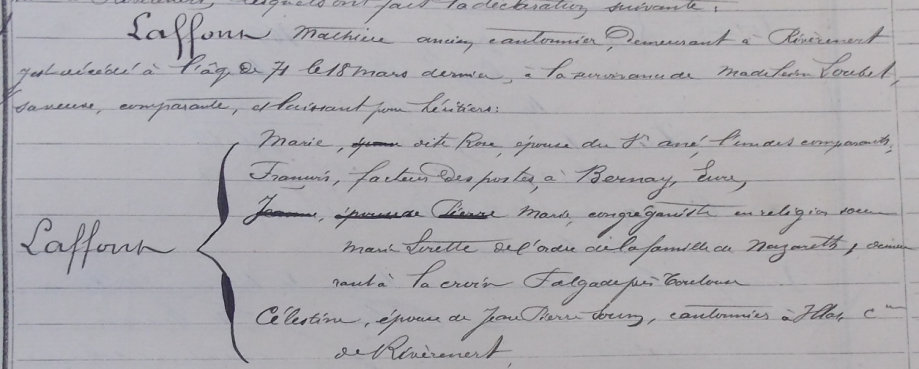 lesquels ont fait la déclaration suivante :
Laffont Mathieu ancien cantonnier, Demeurant à Rivèrenert
y est décédé à l'âge de 71 le 18 mars dernier, à la survivance de Madeleine Loubet,
sa veuve, comparante, et laissant pour héritiers :
Marie, épouse dite Rose, épouse du Sr ané, l'un des comparants,
Francis, facteur des postes, à Bernay, Eure,
Jeanne, épouse de Pierre Marie, congréganiste en religion soeur
Laffont
Marie Lorette de l'ordre de la famille de Nazareth, demeu
rant à la croix Falgade près Toulouse
Célestine, épouse de Jean Pierre Souny, cantonnier à Illas, cne
de Rivèrenert,